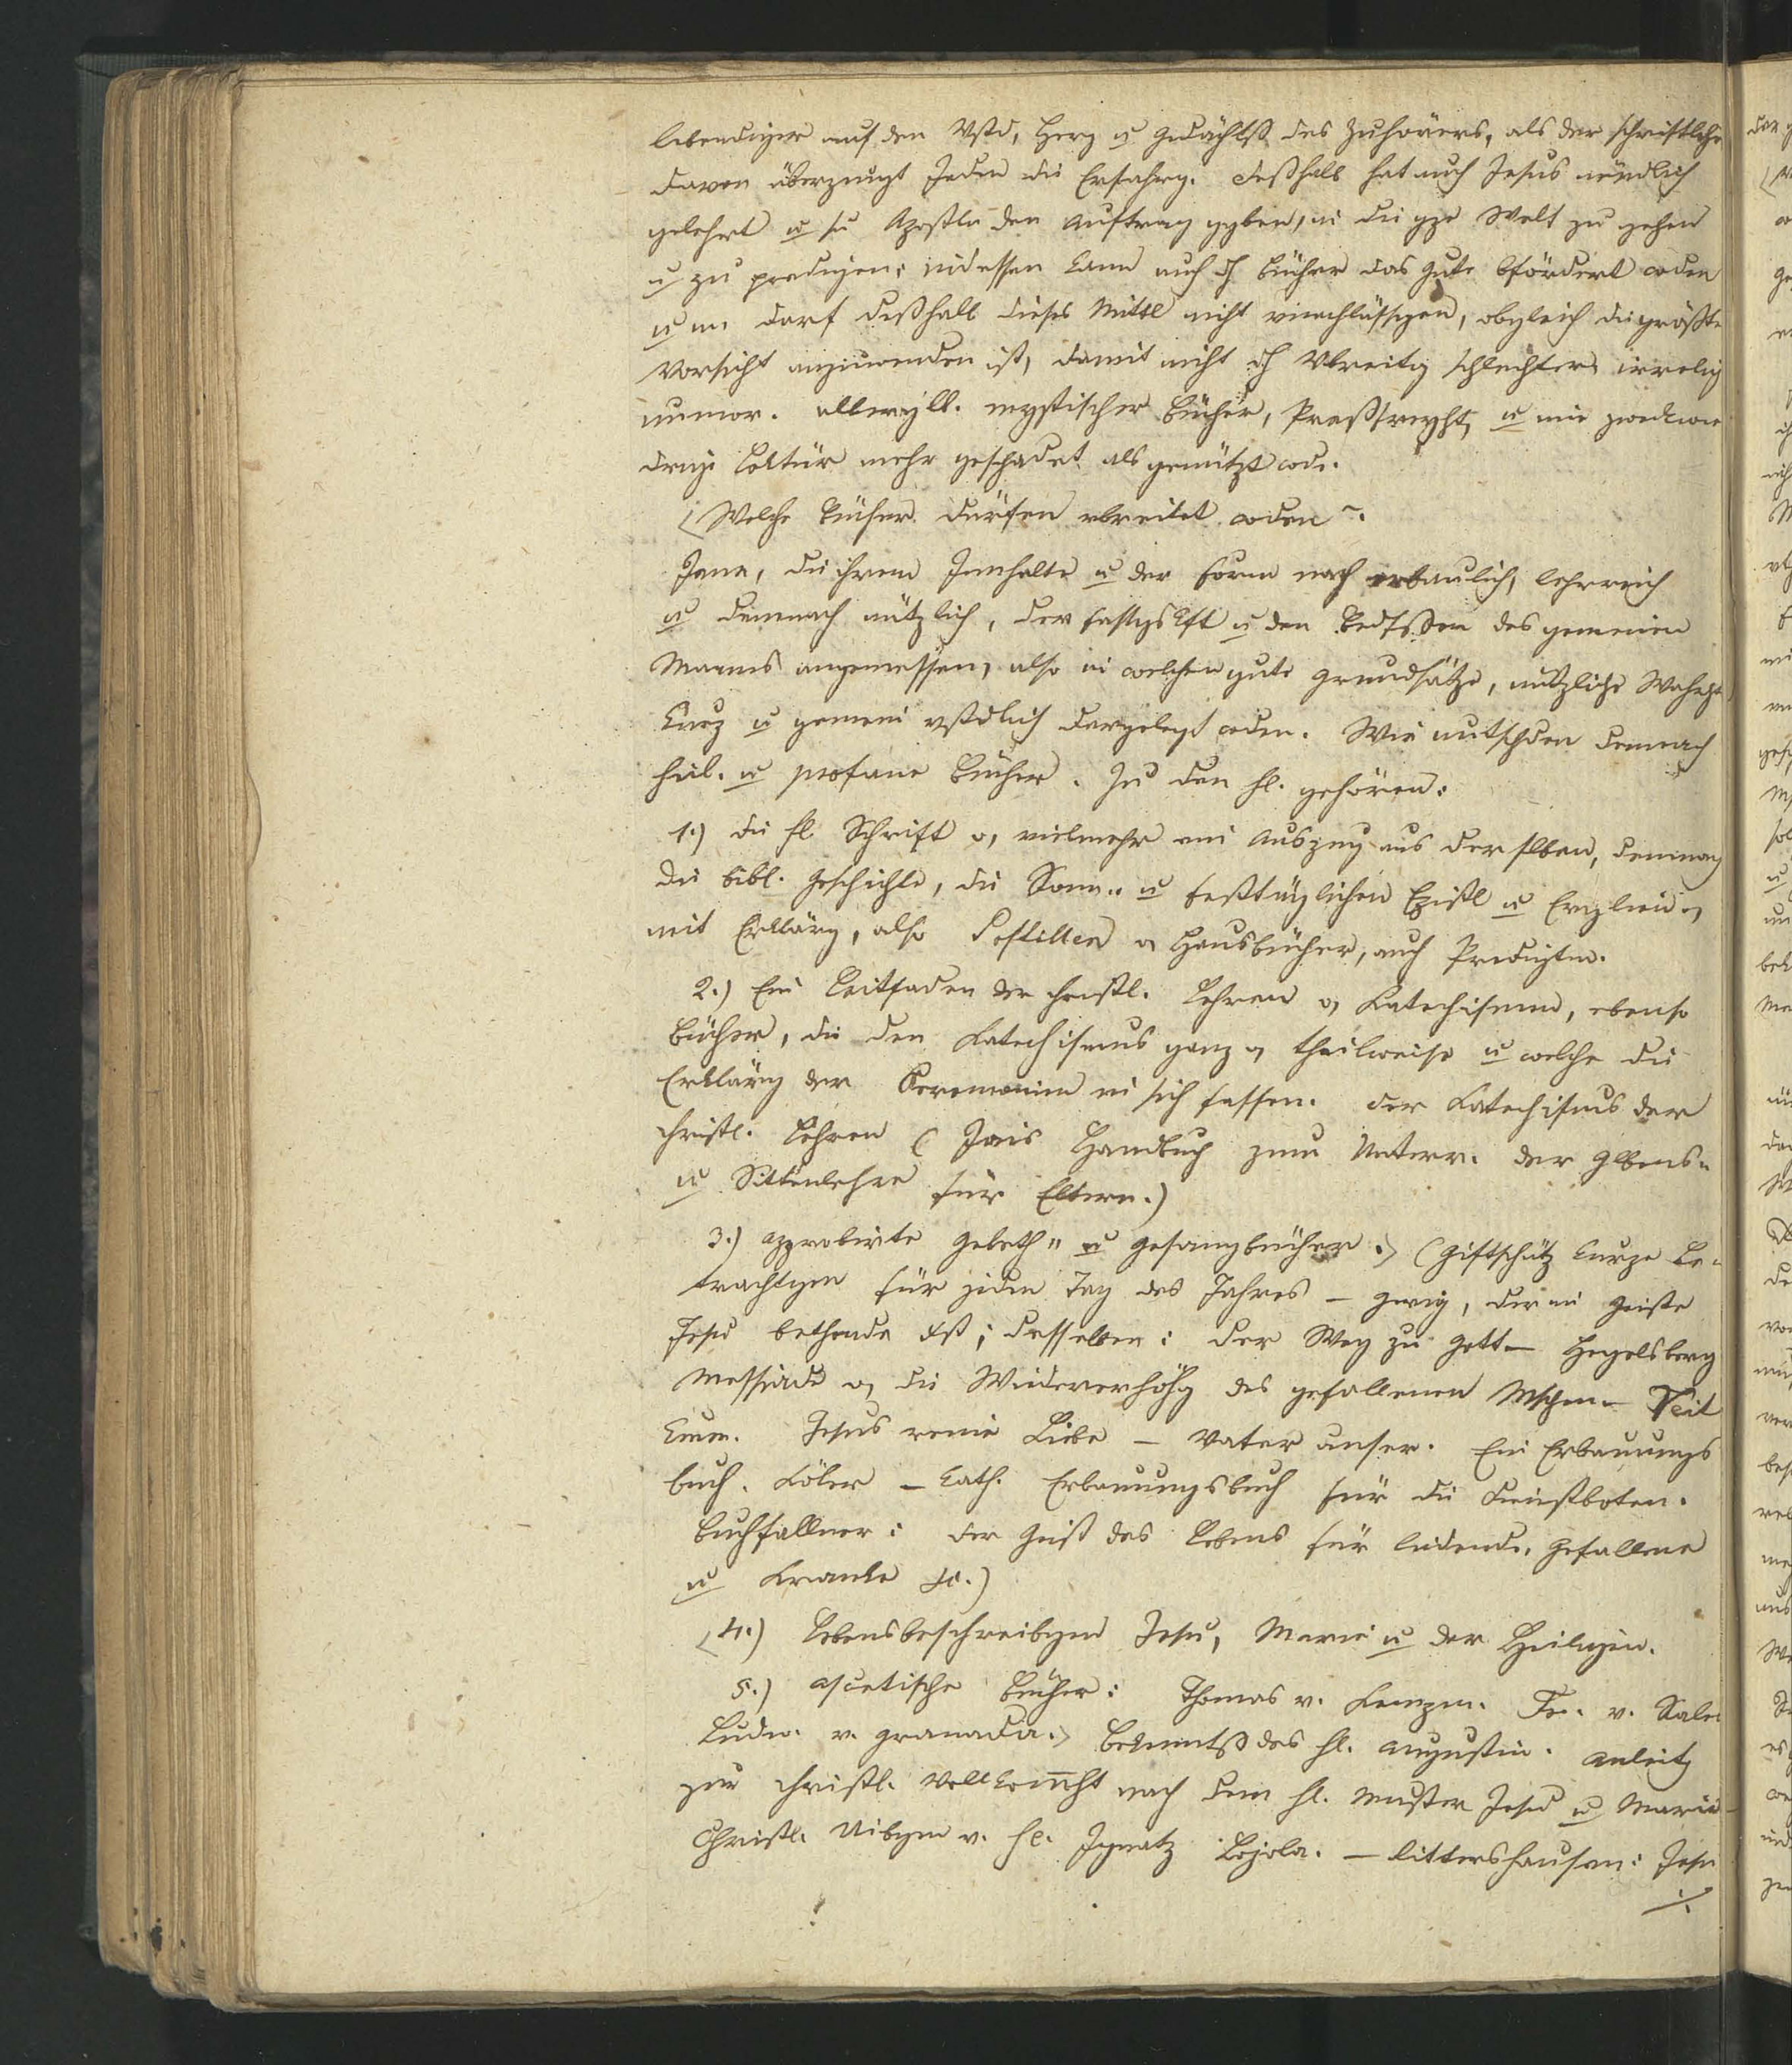 lebendiger auf den Vstd, Herz u Gedächtß des Zuhörers, als der schriftliche
davon überzeugt Jeden die Erfahrg. deßhalb hat auch Jesus mündlich
gelehrt u sn Aposteln den Auftrag ggben, in die gze Welt zu gehen
u zu predigen; indessen kann auch dh Bücher das Gute bfördert wden
u m. darf deßhalb dieses Mittl nicht vnachlässigen, obgleich die größte
Vorsicht anzuwenden ist, damit nicht dh Vbreitg schlechter, irrelig
unmor. mystischer Bücher, u eine zweckwi
drige Lektür mehr geschadet als genützt wde.
Welche Bücher dürfen vbreitet wden
Jene, die ihrem Innhalte u der Form nach erbaulich, lehrreich
u demnach nützlich, der Fassgskft u den Bedfßen des gemeinen
Manns angemessen, also in welchen gute Grundsätze, nützliche Wahrht
kurz u gemein vstdlich dargelegt wden. Wir utschden demnach
heil. u profane Bücher. Zu den hl. gehören:
1.) die hl. Schrift o, vielmehr ein Auszug aus derselben, demnach
die bibl. Geschichte, die Sonn- u festtäglichen Epistl u Evglien o,
mit Erklärg, also Postillen o, Hausbücher, auch Predigten.
2.) Ein Leitfaden der christl. Lehren o, Katechismen, ebenso
Bücher, die den Katechismus ganz o, theilweise u welche die
Erklärg der Ceremonien in sich fassen. Der Katechismus der
christl. Lehren (Jais Handbuch zum Unterr. der Glbens-
u Sittenlehre für Eltern.)
3.) Approbirte Gebeth- u Gesangbücher. (Giftschütz kurze Be-
trachtgen für jeden Tag des Jahres – der im Geiste
Jesu bethende desselben: der Weg zu Gott – Hegelsberg
Messiade o, die Wiedererhöhg des gefallenen Mschen – Veit
Jesus reine Liebe – Vater unser. Ein Erbauungs
buch. Köler – Kath. Erbauungsbuch für die Dienstboten.
Buchfallner: der Geist des Lebens für leidende, Gefallene
u Kranke etc.)
4.) Lebensbeschreibgen Jesu, Mariä u der Heiligen.
5.) ascetische Bücher: Thomas v. Kempen. Fr. v. Sales
Ludw. v. Granada. Bekenntß des hl. Augustin. Anleitg
zur christl. Vollkom̄ht nach dem hl. Muster Jesu u Mariä –
Christl. Uibgen v. hl. Ignatz Lojola. – Littershausen: Jesu
./.